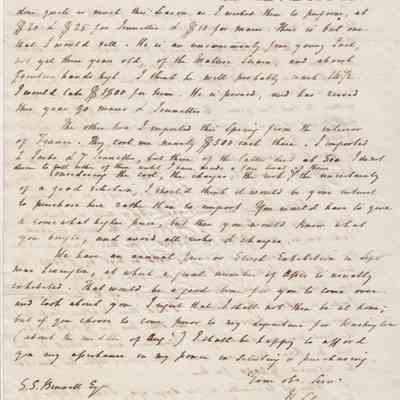 done quite as much this Season as I wished them to perform, at
$20 & $25 for Jennetts & $10 for mares. There is but one
that I would sell. He is an uncommonly fine young Jack,
not yet three years old, of the Maltese breed, and about
fourteen hands high. I think he will probably reach 14 1/2
I would take $1500 for him. He is proved, and has served
this year 90 mares & Jennetts.
The other two I imported this Spring from the interior
of France. They cost me nearly $500 each there. I imported
2 Jacks & 7 Jennetts, but three of the latter died at sea. I do not
desire to sell either of these
Considering the cost, the charges, the risk & the uncertainty
of a good selection, I should think it would be your interest
to purchase here rather than to import. You would have to give
a somewhat higher price, but then you would know what
you bought, and avoid all risks & charges.
We have an annual fair or Stock Exhibition in Sept
near Lexington, at which a great number of Asses is usually
exhibited. That would be a good time for you to come over
and look about you. I regret that I shall not then be at home;
but if you choose to come prior to my departure for Washington
(about the middle of Aug.) I shall be happy to afford
you any assistance in my power in selecting & purchasing.
Your ob. Serv.
H. Clay
Esq